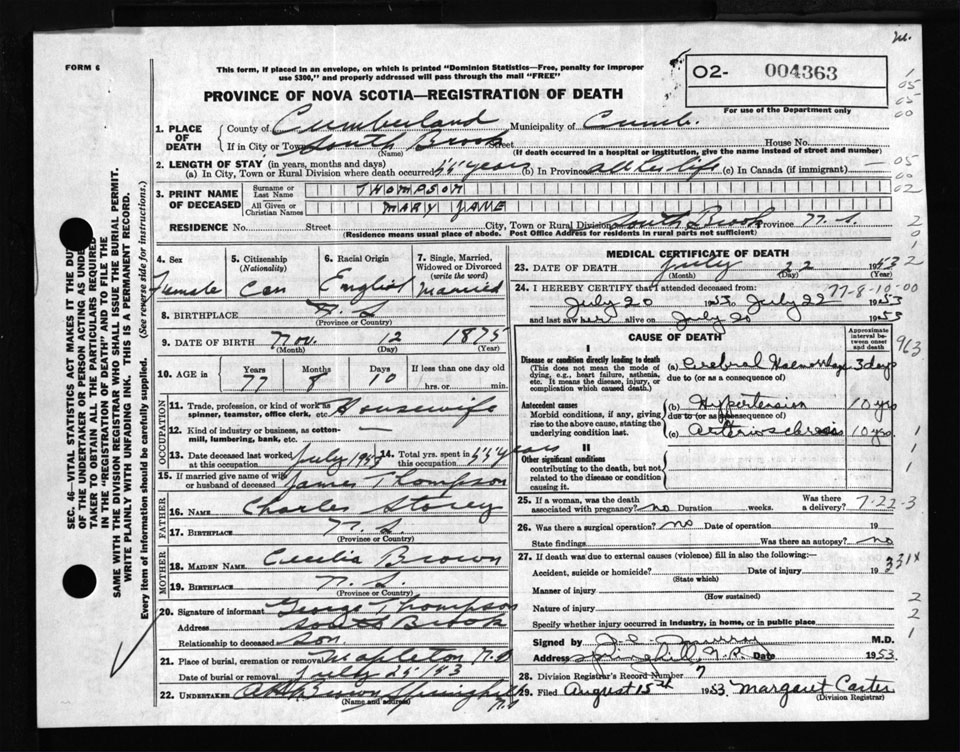 m.
FORM 6
This form, if placed in an envelope, on which is printed "Dominion Statistics—Free, penalty for improper
use $300," and properly addressed will pass through the mail "FREE"
O2- 004363
For use of the Department only
PROVINCE OF NOVA SCOTIA—REGISTRATION OF DEATH
1. PLACE OF DEATH { County of Cumberland Municipality of Cumb.
If in City or Town South Brook Street House No.
(Name) (If death occurred in a hospital or institution, give the name instead of street and number)
2. LENGTH OF STAY (in years, months and days)
(a) In City, Town or Rural Division where death occurred 55 years (b) In Province all her life (c) In Canada (if immigrant)
3. PRINT NAME OF DECEASED { Surname or Last Name THOMPSON
All Given or Christian Names MARY JANE
RESIDENCE No. Street City, Town or Rural Division South Brook Province N. S.
(Residence means usual place of abode. Post Office Address for residents in rural parts not sufficient)
4. Sex Female
5. Citizenship (Nationality) Can
6. Racial Origin English
7. Single, Married, Widowed or Divorced (write the word) Married
8. BIRTHPLACE N. S.
(Province or Country)
9. DATE OF BIRTH Nov. 12 1875
(Month) (Day) (Year)
10. AGE in Years 77 Months 8 Days 10 If less than one day old
hrs. or min.
OCCUPATION
11. Trade, profession, or kind of work as spinner, teamster, office clerk, etc. Housewife
12. Kind of industry or business, as cotton-mill, lumbering, bank, etc. —
13. Date deceased last worked at this occupation July 1953 14. Total yrs. spent in this occupation 55 years
15. If married give name of wife or husband of deceased James Thompson
FATHER
16. NAME Charles Storey
17. BIRTHPLACE N. S.
(Province or Country)
MOTHER
18. MAIDEN NAME Cecelia Brown
19. BIRTHPLACE N. S.
(Province or Country)
20. Signature of informant George Thompson
Address South Brook
Relationship to deceased Son
21. Place of burial, cremation or removal Mapleton N. S
Date of burial or removal July 25 1953
22. UNDERTAKER Brown Springhill N.S
(Name and address)
MEDICAL CERTIFICATE OF DEATH
23. DATE OF DEATH July 22 1953
(Month) (Day) (Year)
24. I HEREBY CERTIFY that I attended deceased from: 77-8-10-00
July 20 1953 to July 22 1953
and last saw her alive on July 20 1953
CAUSE OF DEATH
Approximate interval between onset and death
I
Disease or condition directly leading to death
(This does not mean the mode of dying, e.g., heart failure, asthenia, etc. It means the disease, injury, or complication which caused death.)
(a) Cerebral Haemorrhage 3 days
due to (or as a consequence of)
Antecedent causes
Morbid conditions, if any, giving rise to the above cause, stating the underlying condition last.
(b) Hypertension 10 yrs
due to (or as a consequence of)
(c) Arteriosclerosis 10 yrs.
II
Other significant conditions
contributing to the death, but not related to the disease or condition causing it.
25. If a woman, was the death associated with pregnancy? no Duration weeks. Was there a delivery? 7-22-3
26. Was there a surgical operation? no Date of operation 19
State findings Was there an autopsy? no
27. If death was due to external causes (violence) fill in also the following:—
Accident, suicide or homicide? Date of injury 19 331X
(State which)
Manner of injury
(How sustained)
Nature of injury
Specify whether injury occurred in industry, in home, or in public place
Signed by Murray M.D.
Address Springhill, N.S. Date 1953.
28. Division Registrar's Record Number 7
29. Filed August 15th 1953 Margaret Carter
(Division Registrar)
SEC. 46—VITAL STATISTICS ACT MAKES IT THE DUTY
OF THE UNDERTAKER OR PERSON ACTING AS UNDER-
TAKER TO OBTAIN ALL THE PARTICULARS REQUIRED
IN THE "REGISTRATION OF DEATH" AND TO FILE THE
SAME WITH THE DIVISION REGISTRAR WHO SHALL ISSUE THE BURIAL PERMIT.
WRITE PLAINLY WITH UNFADING INK. THIS IS A PERMANENT RECORD.
Every item of information should be carefully supplied. (See reverse side for instructions.)
1
05
05
00
05
00
02
2
0
1
2
963
1
1
1
2
2
1